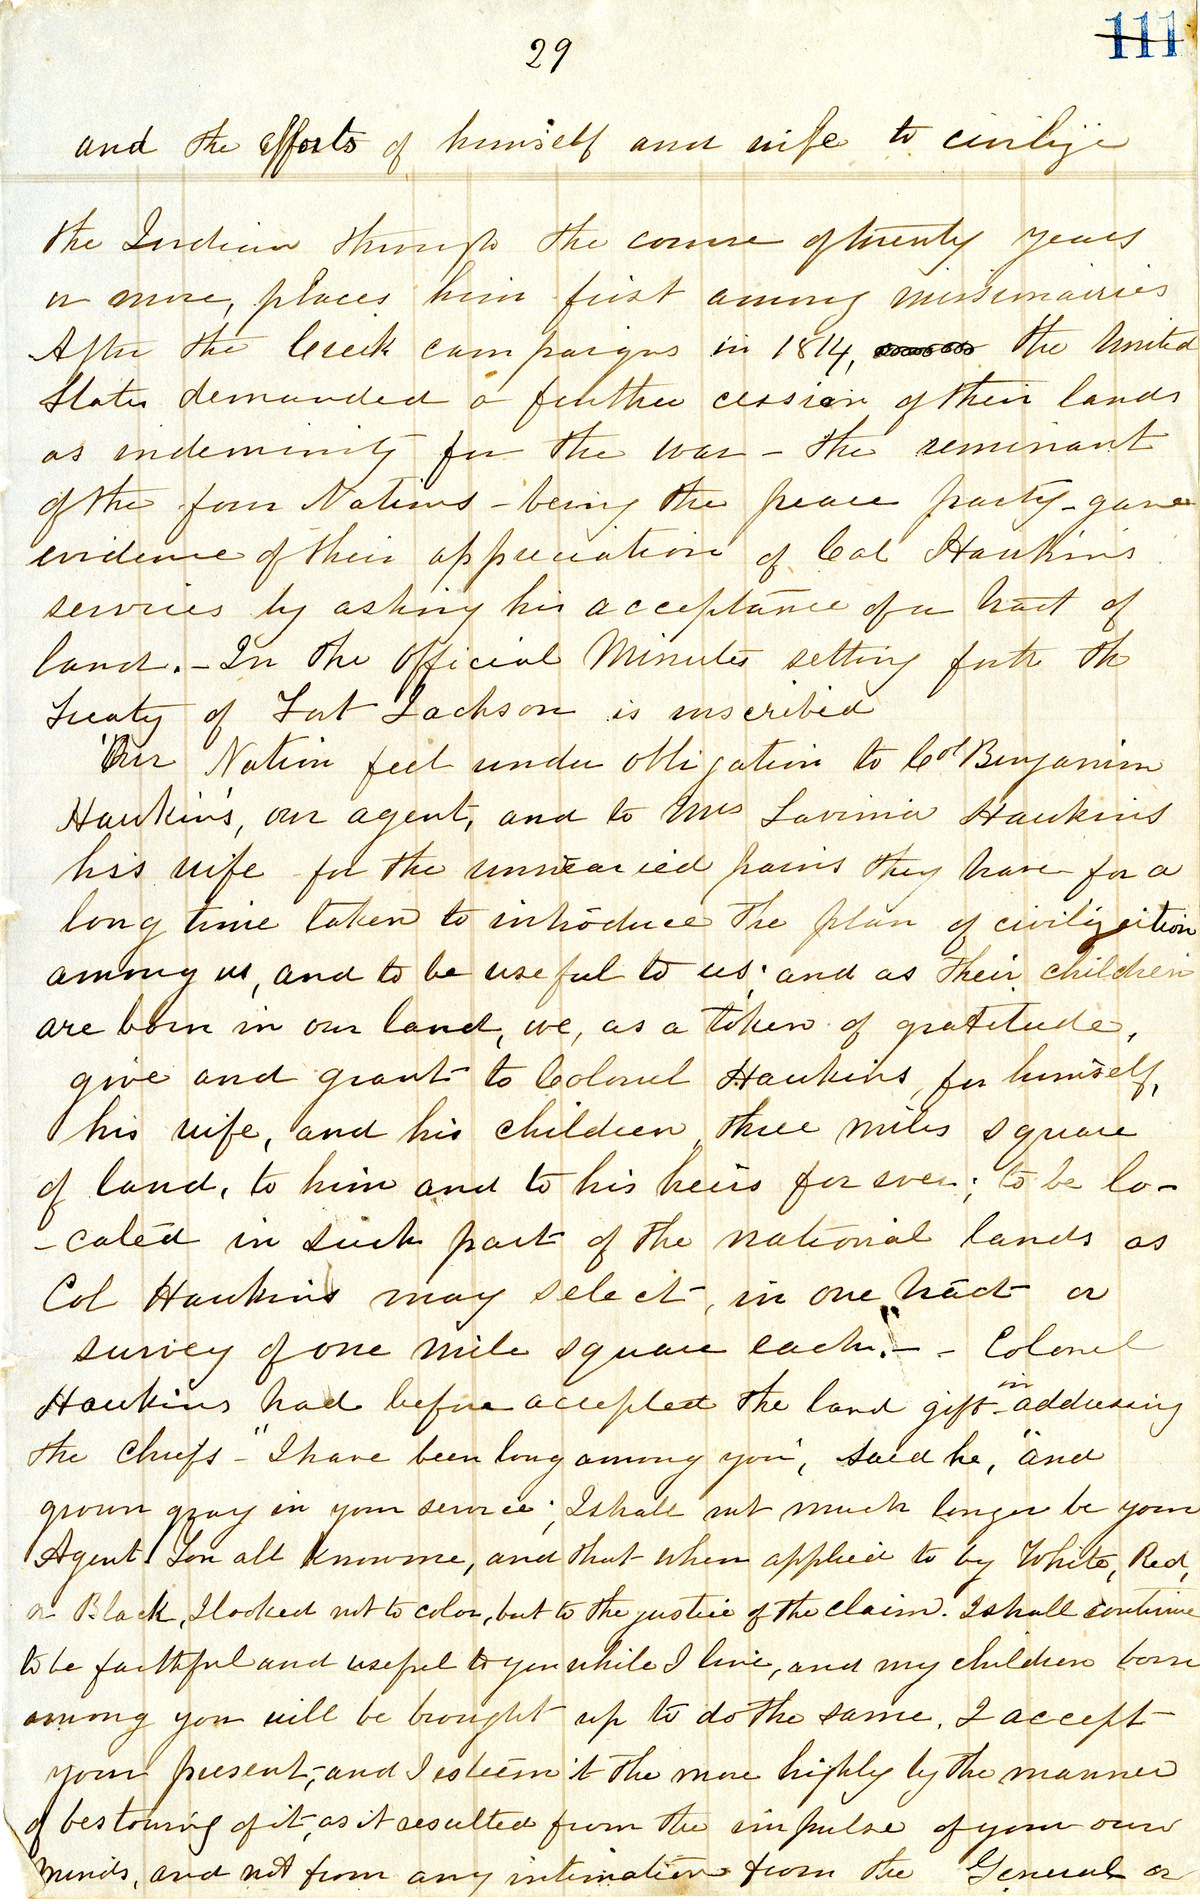 29
111
and the efforts of himself and wife to civilize
the Indian through the course of twenty years
or more, places him first among missionairies
After the Creek campaigns in 1814, the United
States demanded a further cession of their lands
as indeminity for the war - the reminant
of the four Nations - being the peace party - gave
evidence of their appreciation of Col Hawkins
services by asking his acceptance of a tract of
land. - In the Official Minutes setting forth the
Treaty of Fort Jackson is inscribed
"Our Nation feel under obligation to Col Benjamin
Hawkins, our agent, and to Mrs Lavinia Hawkins
his wife for the unwearied pains they have for a
long time taken to introduce the plan of civilization
among us, and to be useful to us; and as their children
are born in our land, we, as a token of gratitude,
give and grant to Colonel Hawkins, for himself,
his wife, and his children, three miles square
of land, to him and to his heirs for ever; to be lo-
-cated in such part of the national lands as
Col Hawkins may select, in one tract or
survey of one mile square each." - - Colonel
Hawkins had before accepted the land gift - in addressing
the Chiefs - "I have been long among you", said he, "and
grown gray in your service; I shall not much longer be your
Agent. You all know me, and that when applied to by White, Red,
or Black, I looked not to color, but to the justice of the claim. I shall continue
to be faithful and useful to you while I live, and my children born
among you will be brought up to do the same. I accept
your present, and I esteem it the more highly by the manner
of bestowing of it, as it resulted from the impulse of your own
minds, and not from any intimation from the General or